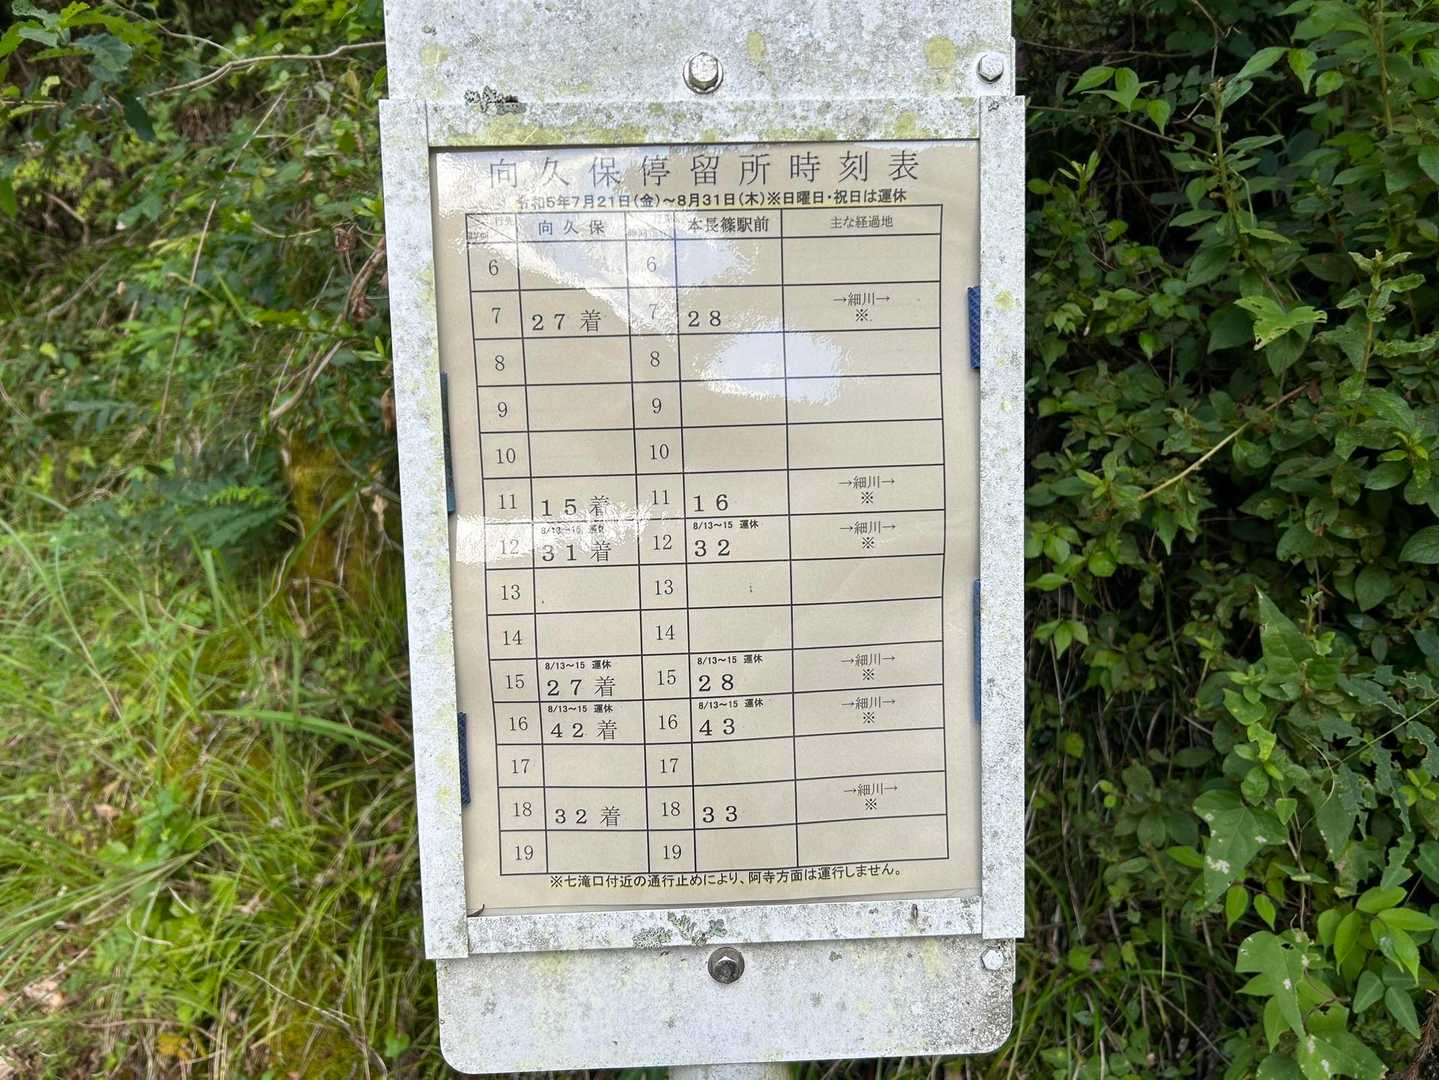 向久保停留所時刻表
令和5年7月21日(金)～8月31日(木)※日曜日・祝日は運休
向久保 本長篠駅前 主な経過地
6 6
7 27着 7 28 →細川→ ※
8 8
9 9
10 10
11 15着 11 16 →細川→ ※
12 8/13～15 運休 31着 12 8/13～15 運休 32 →細川→ ※
13 13
14 14
15 8/13～15 運休 27着 15 8/13～15 運休 28 →細川→ ※
16 8/13～15 運休 42着 16 8/13～15 運休 43 →細川→ ※
17 17
18 32着 18 33 →細川→ ※
19 19
※七滝口付近の通行止めにより、阿寺方面は運行しません。